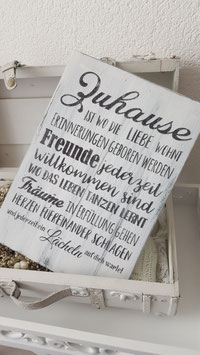 Zuhause
IST WO DIE LIEBE WOHNT
ERINNERUNGEN GEBOREN WERDEN
Freunde jederzeit
willkommen sind
WO DAS LEBEN TANZEN LERNT
Träume IN ERFÜLLUNG GEHEN
HERZEN FÜREINANDER SCHLAGEN
und jederzeit ein Lächeln auf dich wartet